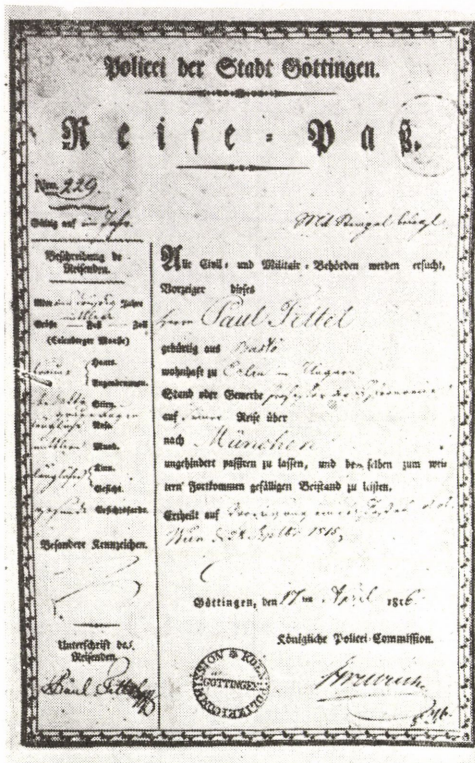 Policei der Stadt Göttingen.
Reise-Paß.
Nro. 229.
Gültig auf ein Jahr.
Beschreibung de
Reisenden.
Alter Jahre
mittlere
Größe Fuß Zoll
(Calenberger Maaße)
Haare.
Augenbraunen.
Stirn.
Nase.
mittlere Mund.
Kinn.
Gesicht.
gesunde Gesichtsfarbe.
Besondere Kennzeichen.
Unterschrift des
Reisenden.
Paul Tittel
Mit Stempel
Alle Civil- und Militair-Behörden werden ersucht,
Vorzeiger dieses
Herr Paul Tittel
gebürtig aus
wohnhaft zu Erlau in Ungarn
Stand oder Gewerbe Professor der Astronomie
auf seiner Reise über
nach München
ungehindert passiren zu lassen, und demselben zum wei-
tern Fortkommen gefälligen Beistand zu leisten.
Ertheilt auf
Wien 1815,
Göttingen, den 17ten April 1816
Königliche Policei-Commission.
GÖTTINGEN